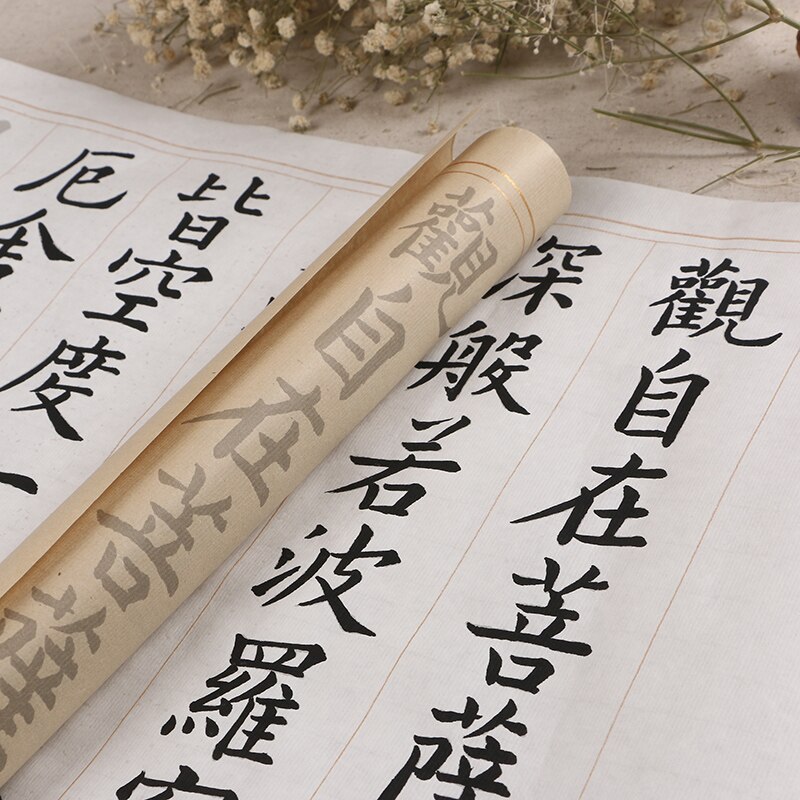 觀自在菩薩
深般若波羅
皆空度一
厄舍
觀自在菩薩